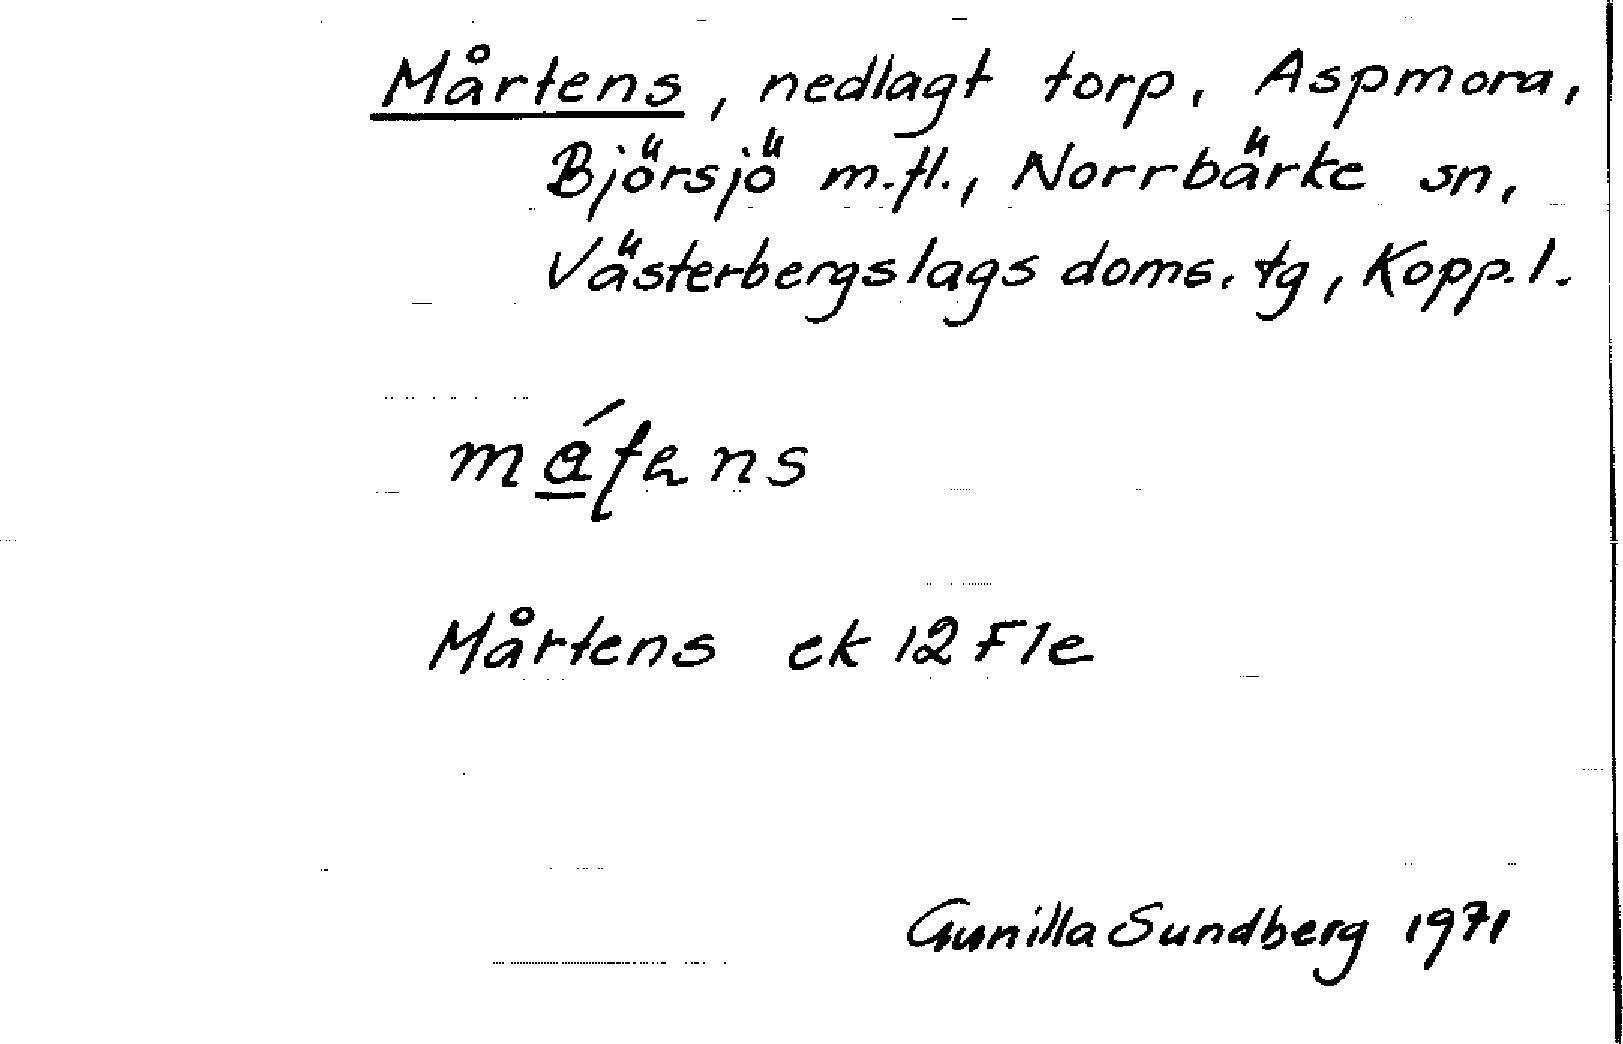 Mårtens, nedlagt torp, Aspmora,
Björsjö m.fl., Norrbärke sn,
Västerbergslags doms. tg, Kopp. l.
Mårtens ek 12 F 1 e
Gunilla Sundberg 1971